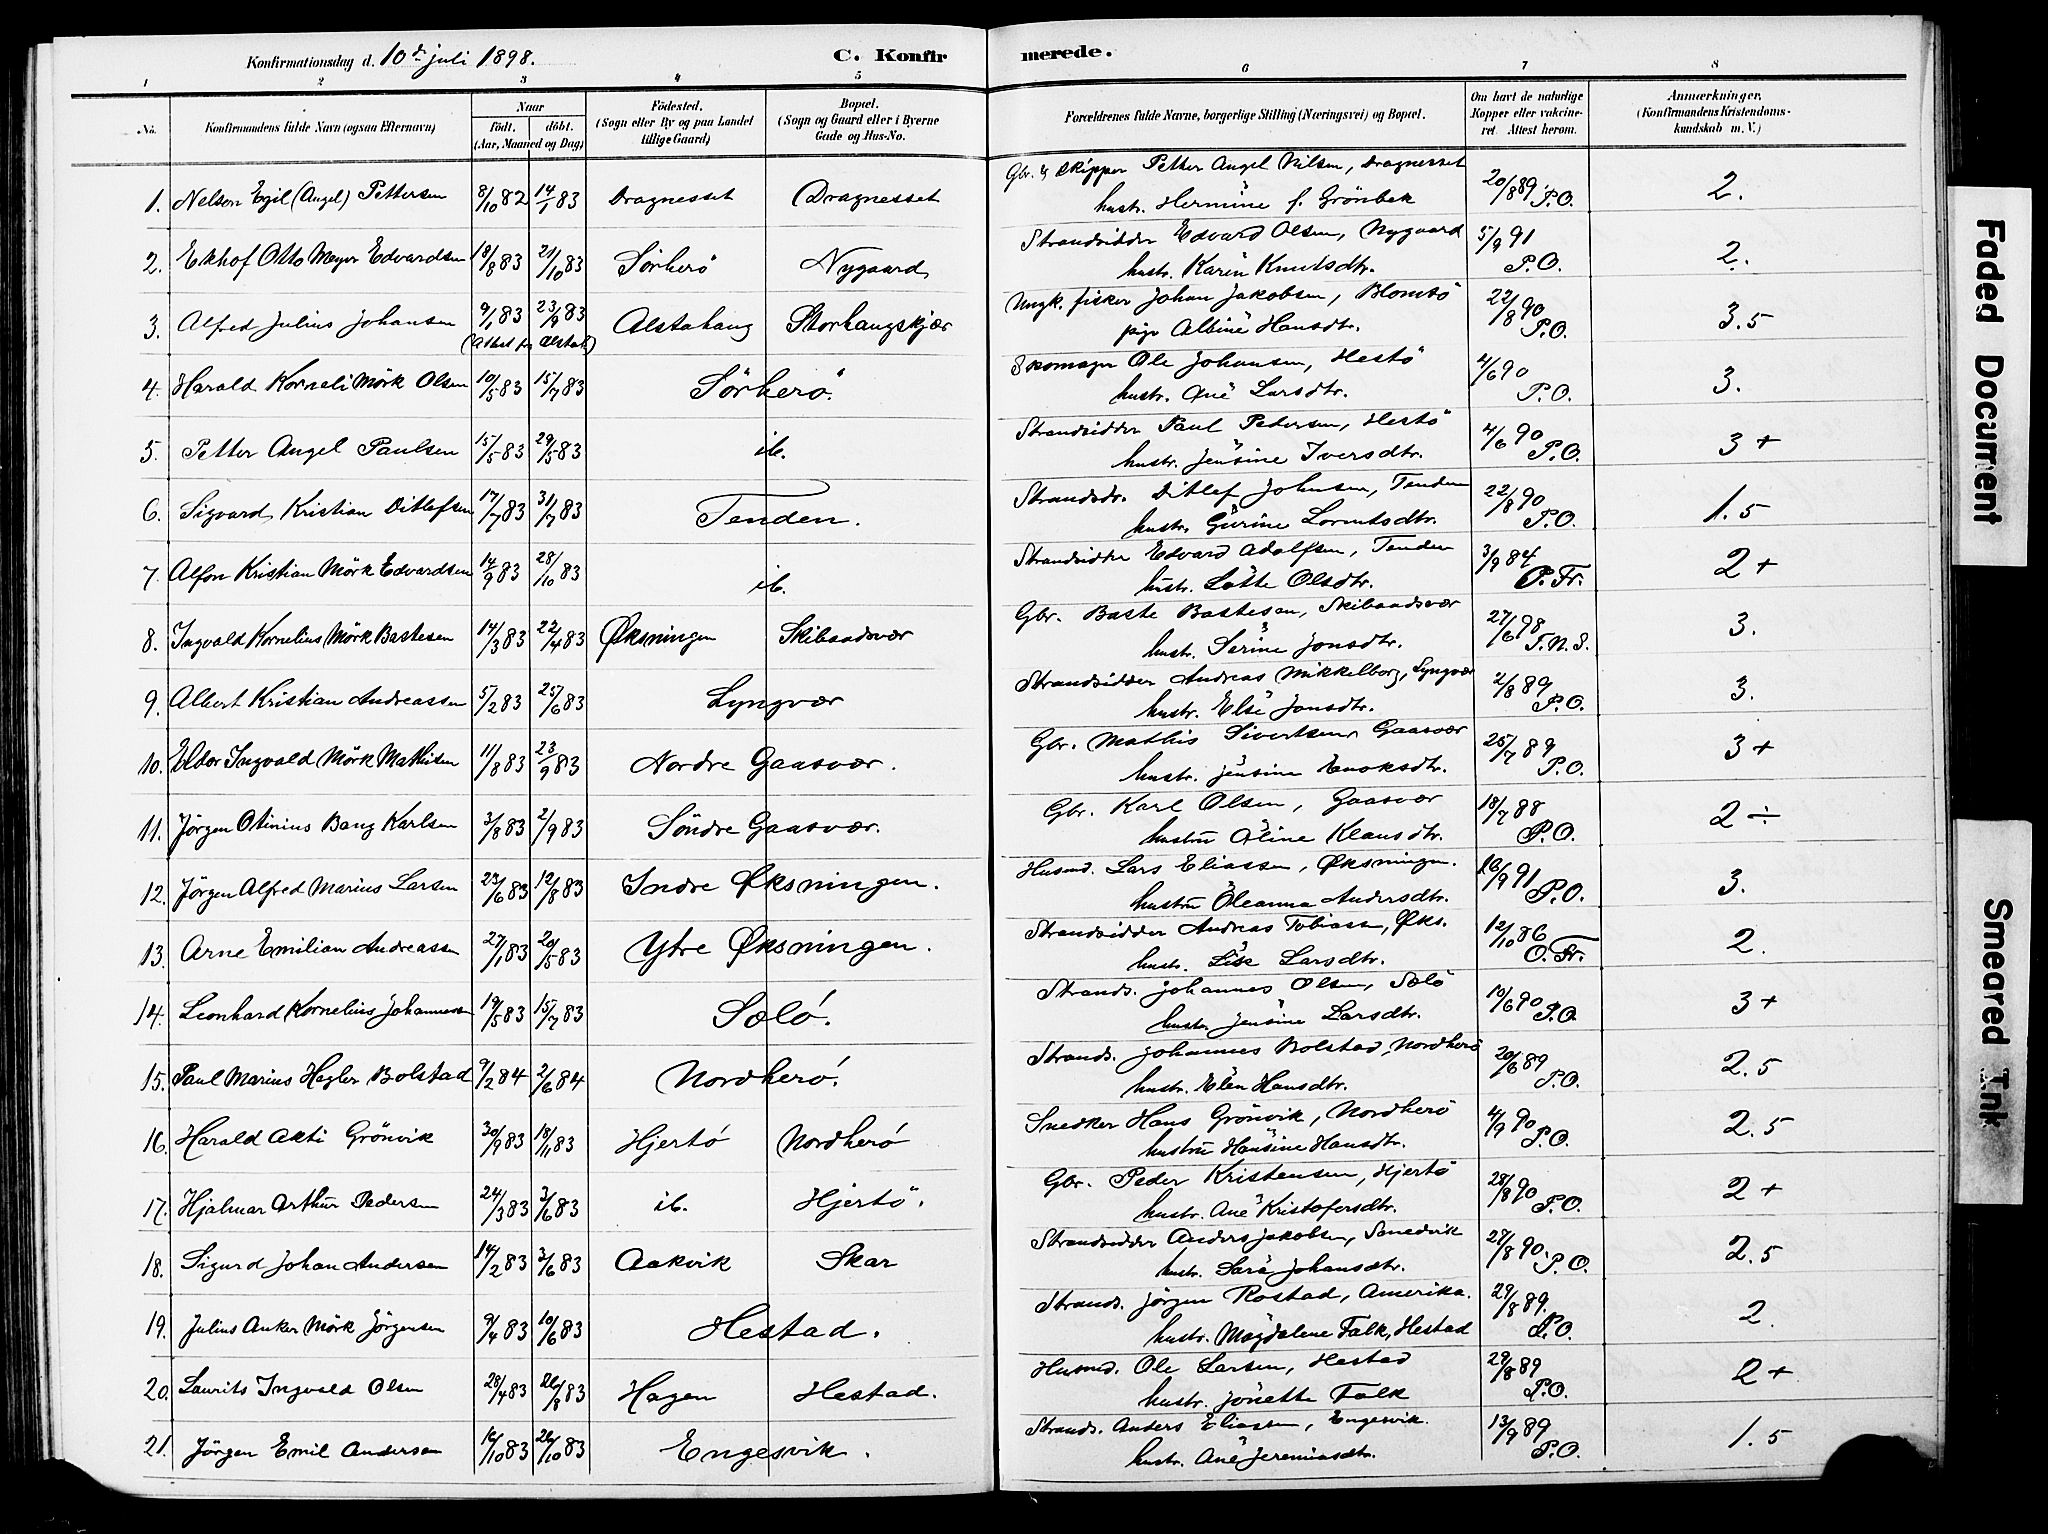 Konfirmationsdag d. 10de juli 1898. C. Konfirmerede.
1 2 3 4 5 6 7 8
No. Konfirmandens fulde Navn (ogsaa Efternavn) Naar født. døbt. (Aar, Maaned og Dag) Födested. (Sogn eller By og paa Landet tillige Gaard) Bopæl. (Sogn og Gaard eller i Byerne Gade og Hus-No. Forældrenes fulde Navne, borgerlige Stilling (Næringsvei) og Bopæl. Om havt de naturlige Kopper eller vakcineret. Attest herom. Anmærkninger, (Konfirmandens Kristendomskundskab m. V.)
1. Nelson Egil (Angel) Pettersen 8/10 82 14/1 83 Dragnesset Dragnesset Gbr. & skipper Petter Angel Nilsen, Dragnesset 20/8 89 P.O. 2.
hustr. Hermine f. Grönbek
2. Ekhof Otto Meyer Edvardsen 18/8 83 21/10 83 Sörherö Nygaard Strandsidder Edvard Olsen, Nygaard 5/9 91 P.O. 2.
hustr. Karin Knutsdtr.
3. Alfred Julius Johansen 9/1 83 23/9 83 Alstahaug Storhaugskjær Ungk. fisker Johan Jakobsen, Blomsö 22/8 90 P.O. 3.5
(Attest fra Alstah.) pige Albine Hansdtr.
4. Harald Korneli Mörk Olsen 10/5 83 15/7 83 Sörherö. Skomager Ole Johansen, Hestö 4/6 90 P.O. 3.
hustr. Ane Larsdtr.
5. Petter Angel Paulsen 15/5 83 29/5 83 ib. Strandsidder Paul Pedersen, Hestö 4/6 90 P.O. 3+
hustr. Jensine Iversdtr.
6. Sigvard Kristian Ditlefsen 17/7 83 31/7 83 Tenden. Strandsdr. Ditlef Johnsen, Tenden 22/8 90 P.O. 1.5
hustr. Gurine Lorntsdtr.
7. Alfon Kristian Mörk Edvardsen 14/9 83 28/10 83 ib. Strandsidder Edvard Adolfsen, Tenden 3/9 84 P. Fr. 2+
hustr. Lotte Olsdtr.
8. Ingvald Kornelius Mörk Bastesen 14/3 83 22/4 83 Øksningen Skibaadsvær Gbr. Baste Bastesen, Skibaadsvær 27/6 98 T.N.S. 3.
hustr. Serine Jonsdtr.
9. Albert Kristian Andreassen 5/2 83 25/6 83 Lyngvær Strandsidder Andreas Mikkelborg, Lyngvær 2/8 89 P.O. 3.
hustr. Else Jonsdtr.
10. Eldor Ingvald Mörk Mathisen 11/8 83 23/9 83 Nordre Gaasvær. Gbr. Mathis Sivertsen, Gaasvær 25/7 89 P.O. 3+
hustr. Jensine Enoksdtr.
11. Jörgen Otinius Bang Karlsen 3/8 83 2/9 83 Söndre Gaasvær. Gbr. Karl Olsen, Gaasvær 18/7 88 P.O. 2÷
hustru Oline Klausdtr.
12. Jörgen Alfred Marius Larsen 23/6 83 12/8 83 Indre Øksningen. Husmd. Lars Eliassen, Øksningen. 16/9 91 P.O. 3.
hustru Oleanna Andersdtr.
13. Arne Emilian Andreassen 27/1 83 20/5 83 Ytre Øksningen. Strandsidder Andreas Tobiassen, Øks. 12/10 86 O. Fr. 2.
hustr. Lise Larsdtr.
14. Leonhard Kornelius Johannessen 19/5 83 15/7 83 Sælö. Strands. Johannes Olsen, Sælö 10/6 90 P.O. 3+
hustr. Jensine Larsdtr.
15. Paul Marius Hagler Bolstad 9/2 84 2/6 84 Nordherö. Strands. Johannes Bolstad, Nordherö 20/6 89 P.O. 2.5
hustr. Elen Hansdtr.
16. Harald Akti Grönvik 30/9 83 18/11 83 Hjertö Nordherö Snedker Hans Grönvik, Nordherö 4/9 90 P.O. 2.5
hustru Hansine Hansdtr.
17. Hjalmar Arthur Pedersen 24/3 83 3/6 83 ib. Hjertö. Gbr. Peder Kristensen, Hjertö 28/8 90 P.O. 2+
hustr. Ane Kristofersdtr.
18. Sigurd Johan Andersen 14/2 83 3/6 83 Aakvik Skar Strandsidder Anders Jakobsen, Sandvik 27/8 90. P.O. 2.5
hustr. Sara Johansdtr.
19. Julius Anker Mörk Jörgensen 9/4 83 10/6 83 Hestad. Strands. Jörgen Rostad, Amerika. 29/8 89. P.O. 2.
hustr. Magdalene Falk, Hestad
20. Laurits Ingvald Olsen 28/4 83 26/8 83 Hagen Hestad. Husmd. Ole Larsen, Hestad 29/8 89 P.O. 2+
hustr. Jonette Falk
21. Jörgen Emil Andersen 16/10 83 26/10 83 Engesvik. Strands. Anders Eliassen, Engesvik. 13/9 89 P.O. 1.5
hustr. Ane Jeremiasdtr.
Faded Document
Smeared Ink